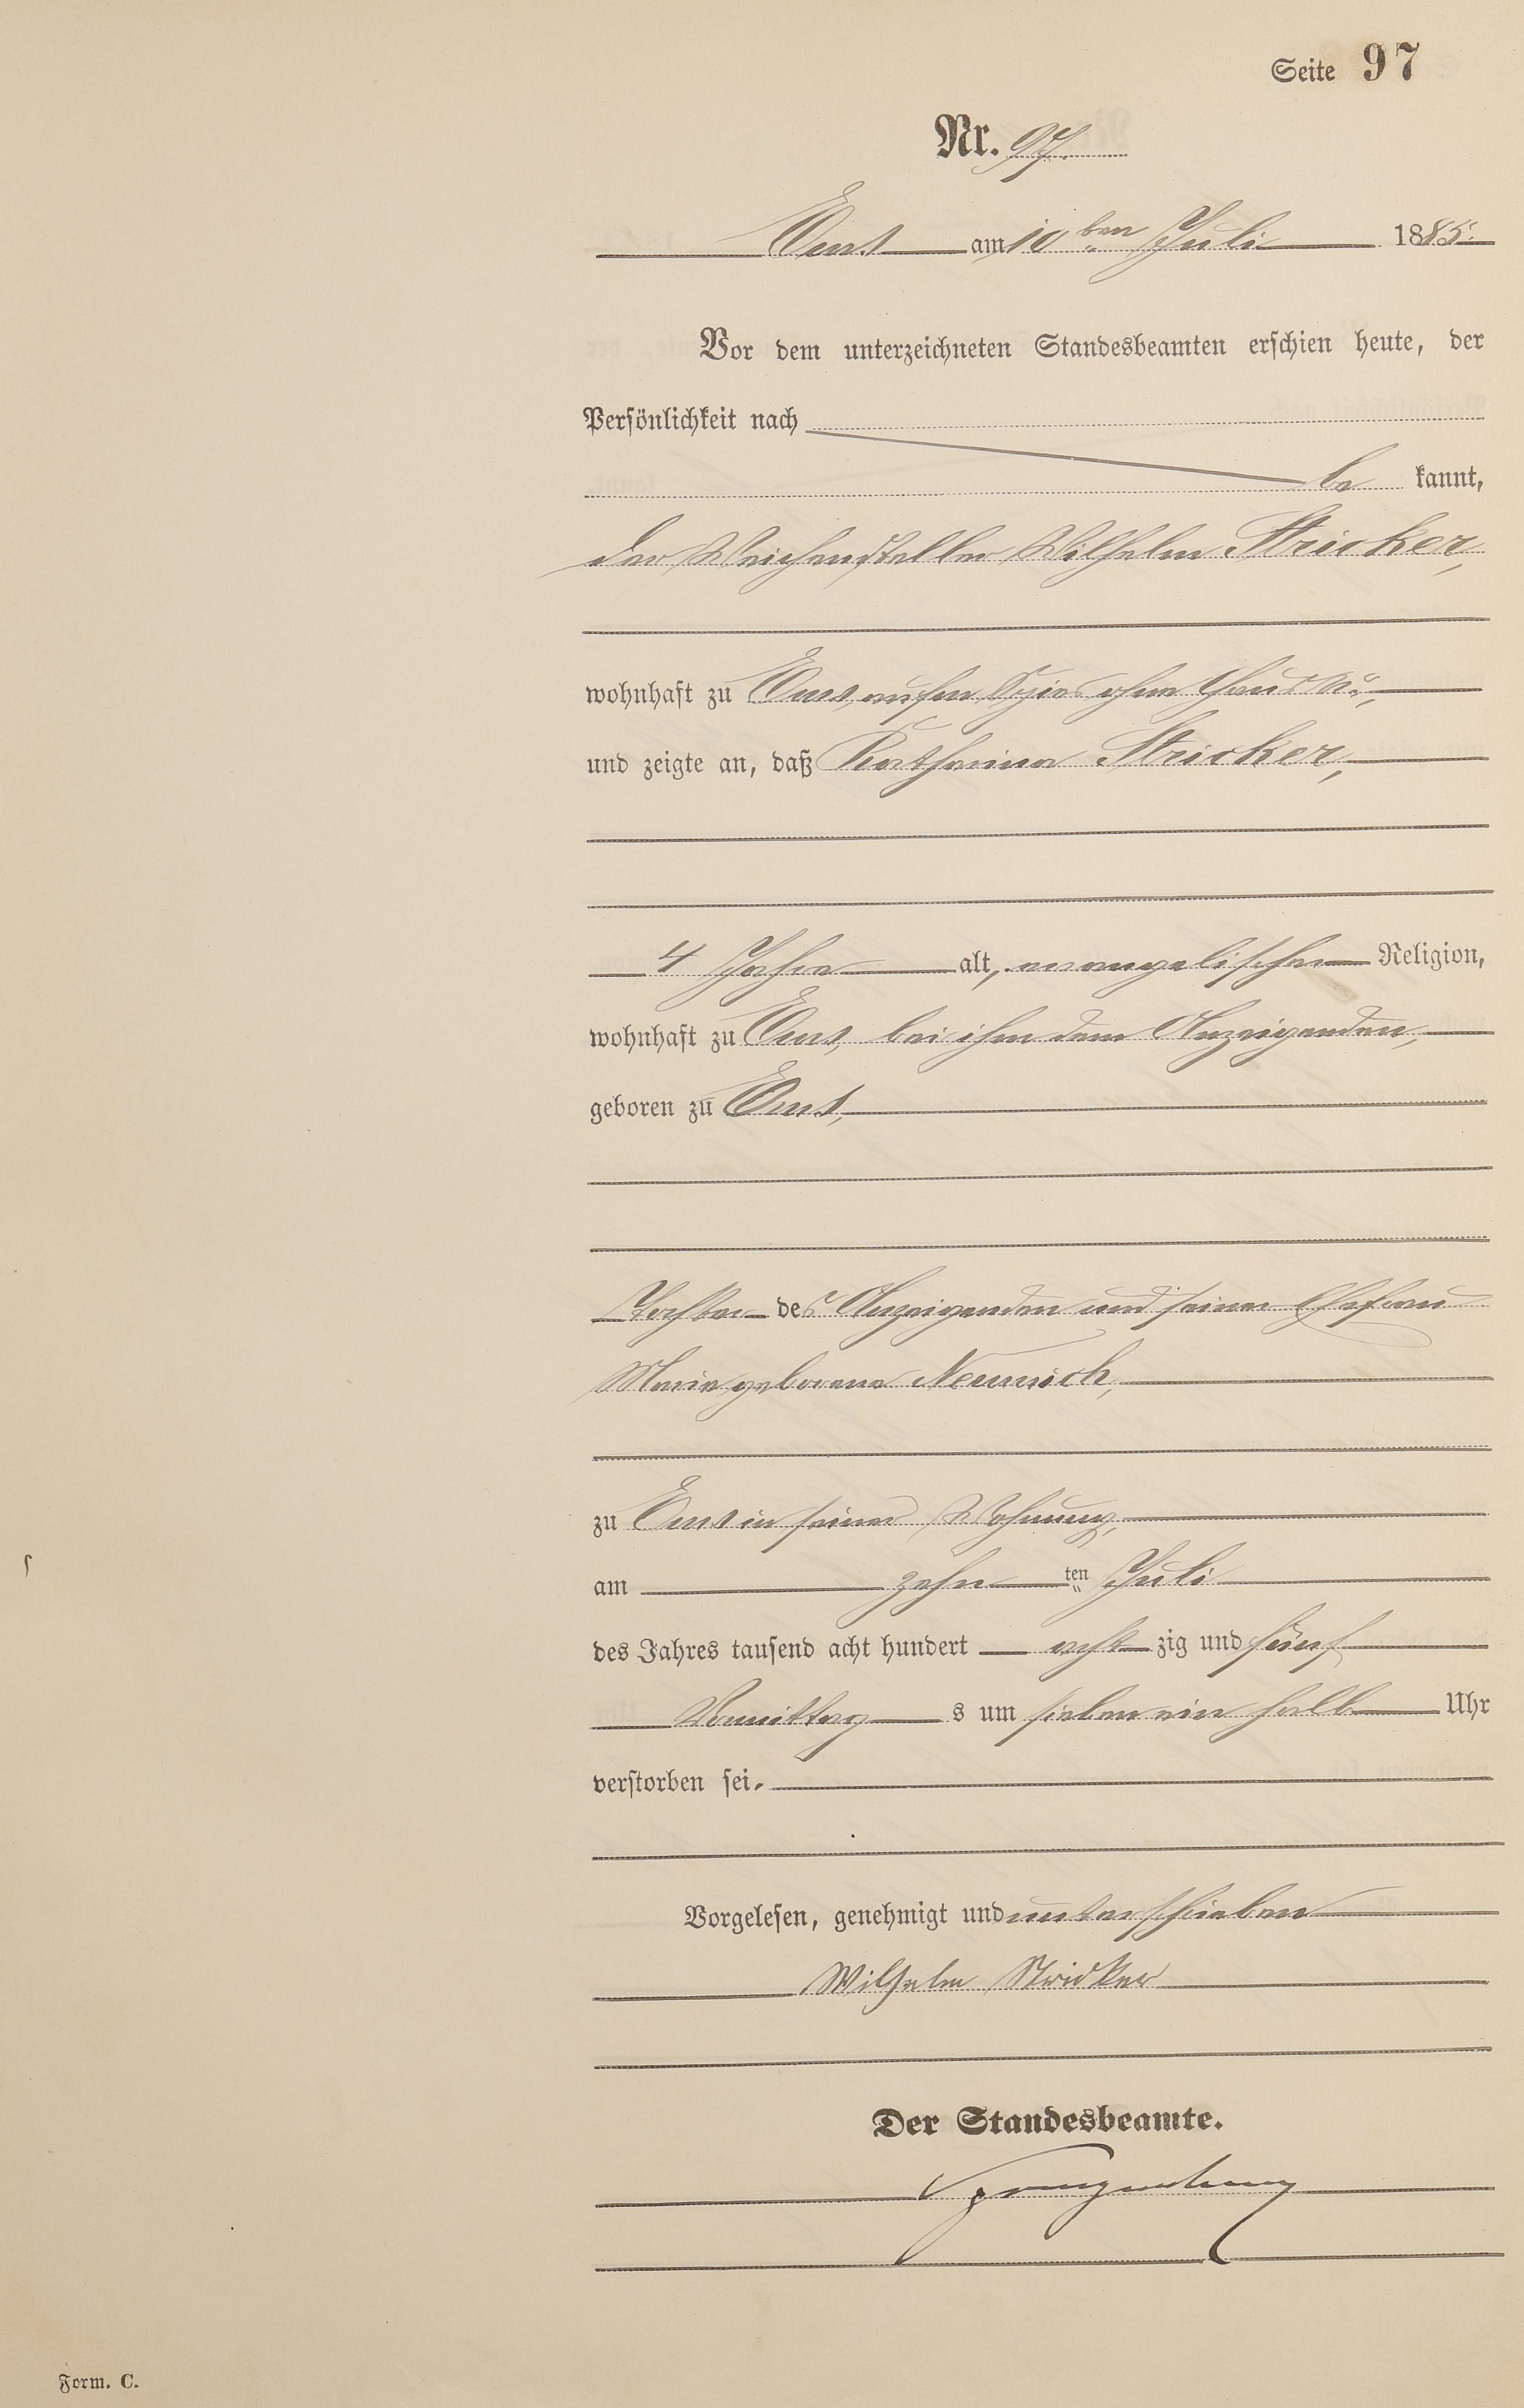 Seite 97
Nr. 97.
Ems am 10ten Juli 1885.
Vor dem unterzeichneten Standesbeamten erschien heute, der
Persönlichkeit nach
be kannt,
der Weichensteller Wilhelm Stricker,
wohnhaft zu Ems, auf'm Spies ohne Haus No,
und zeigte an, daß Katharina Stricker,
4 Jahre alt, evangelischer Religion,
wohnhaft zu Ems, bei ihm dem Anzeigenden,
geboren zu Ems,
Tochter des Anzeigenden und seiner Ehefrau
Marie geborene
zu Ems in seiner Wohnung,
am zehn ten Juli
des Jahres tausend acht hundert acht zig und fünf
Vormittag s um sieben ein halb Uhr
verstorben sei.
Vorgelesen, genehmigt und unterschrieben
Wilhelm Stricker
Der Standesbeamte.
Form. C.